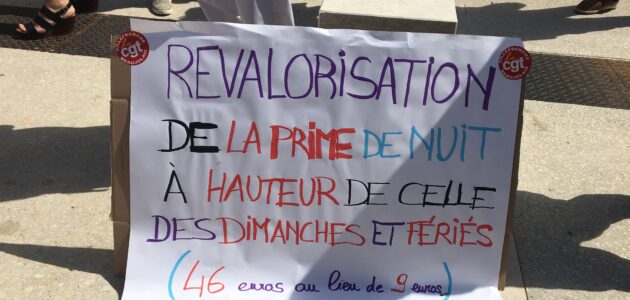 REVALORISATION
DE LA PRIME DE NUIT
À HAUTEUR DE CELLE
DES DIMANCHES ET FÉRIÉS
(46 euros au lieu de 9 euros(
cgt
VILLEFRANCHE
BEAUJOLAIS
cgt
BEAUJOLAIS